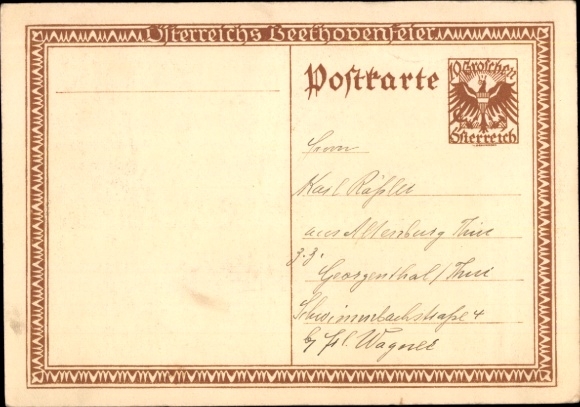 Österreichs Beethovenfeier
Postkarte
10 Groschen
Österreich
Herrn
Karl Räßler
aus Altenburg Thür
z. Z.
Georgenthal/Thür
Schwimmbachstraße 4
b/ Frl. Wagner